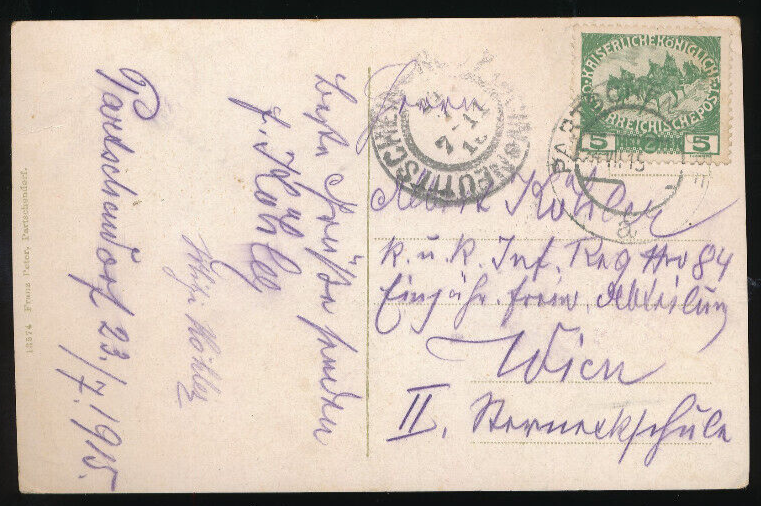 Partschendorf 23./7. 1915.
beste Grüße senden
F. Köhler
Köhler
13874 Franz Peter, Partschendorf.
KAISERLICHE KÖNIGLICHE
ÖSTERREICHISCHE POST
5 5
NEUTITSCHEIN
Herrn
Köhler
k. u. k. Inf. Reg Nro 84
Einjähr. freiw. Abteilung
Wien
II. Sterneckschule